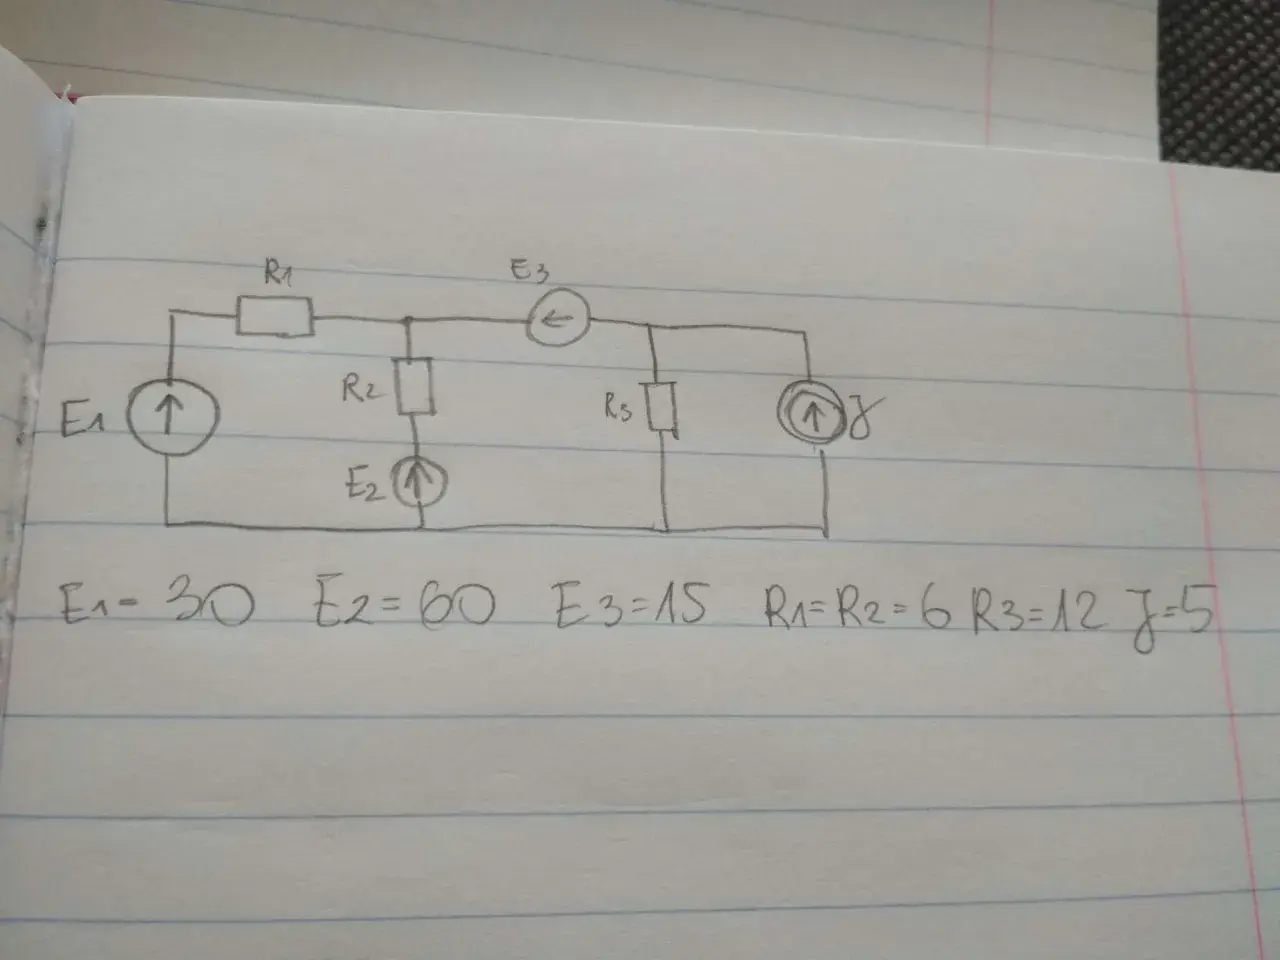 R1
E3
R2
R3
E1
J
E2
E1= 30 E2=60 E3=15 R1=R2=6 R3=12 J=5